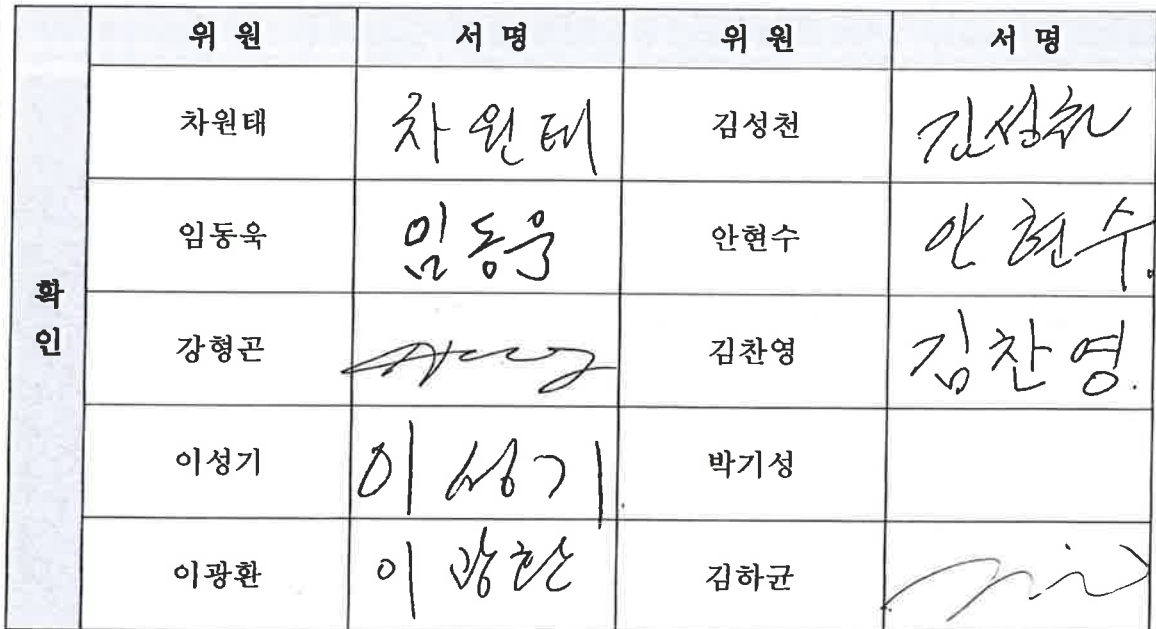 위 원 서 명 위 원 서 명
차원태 차원태 김성천 김성천
임동욱 임동욱 안현수 안현수.
확인
강형곤 김찬영 김찬영.
이성기 이성기. 박기성
이광환 이광환 김하균